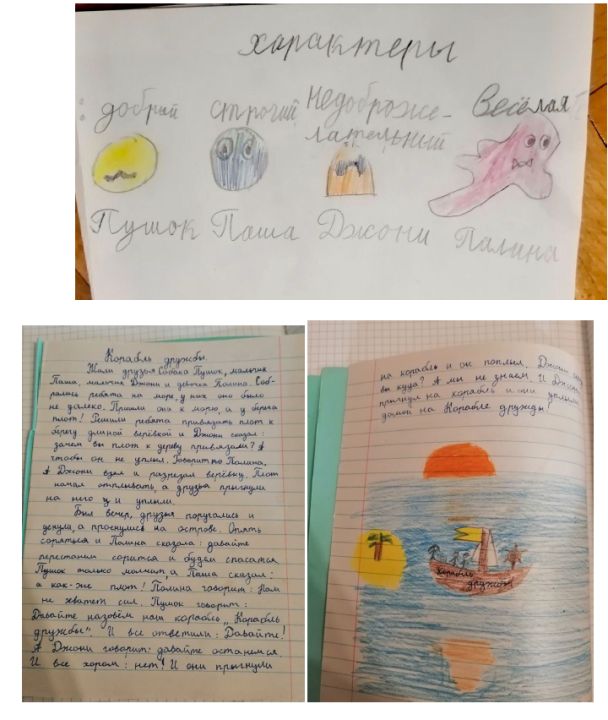 характеры
: добрый строгий Недоброже- Весёлая!
лательный
Пушок Паша Джони Палина
Корабль дружбы.
Жили друзья собака Пушок, мальчик
Паша, мальчик Джони и девочка Полина. Соб-
рались ребята на море, у них оно было
не далеко. Пришли они к морю, а у берега
плот! Решили ребята привязать плот к
берегу длиной верёвкой и Джони сказал:
зачем вы плот к дереву привязали? А
чтобы он не уплыл. Говорит Полина,
А Джони взял и разрезал верёвку. Плот
начал отпливать, а друзья прыгнули
на него и уплыли.
Был вечер, друзья поругались и
уснули, а проснулись на острове. Опять
сорятся и Полина сказала: давайте
перестанем сорится и будем спасатся
Пушок только молчит, а Паша сказал:
а как-же плот! Полина говорит: Нам
не хватет сил. Пушок говорит:
Давайте назовём наш корабль „Корабль
дружбы". И все ответили: Давайте!
А Джони говорит: давайте останемся.
И все хором: нет! И они прыгнули
на корабль и он поплыл. Джони
вы куда? А мы не знаем. И Джони
прыгнул на корабль и они уплыли
домой на Корабле дружбы!
корабль
дружбы